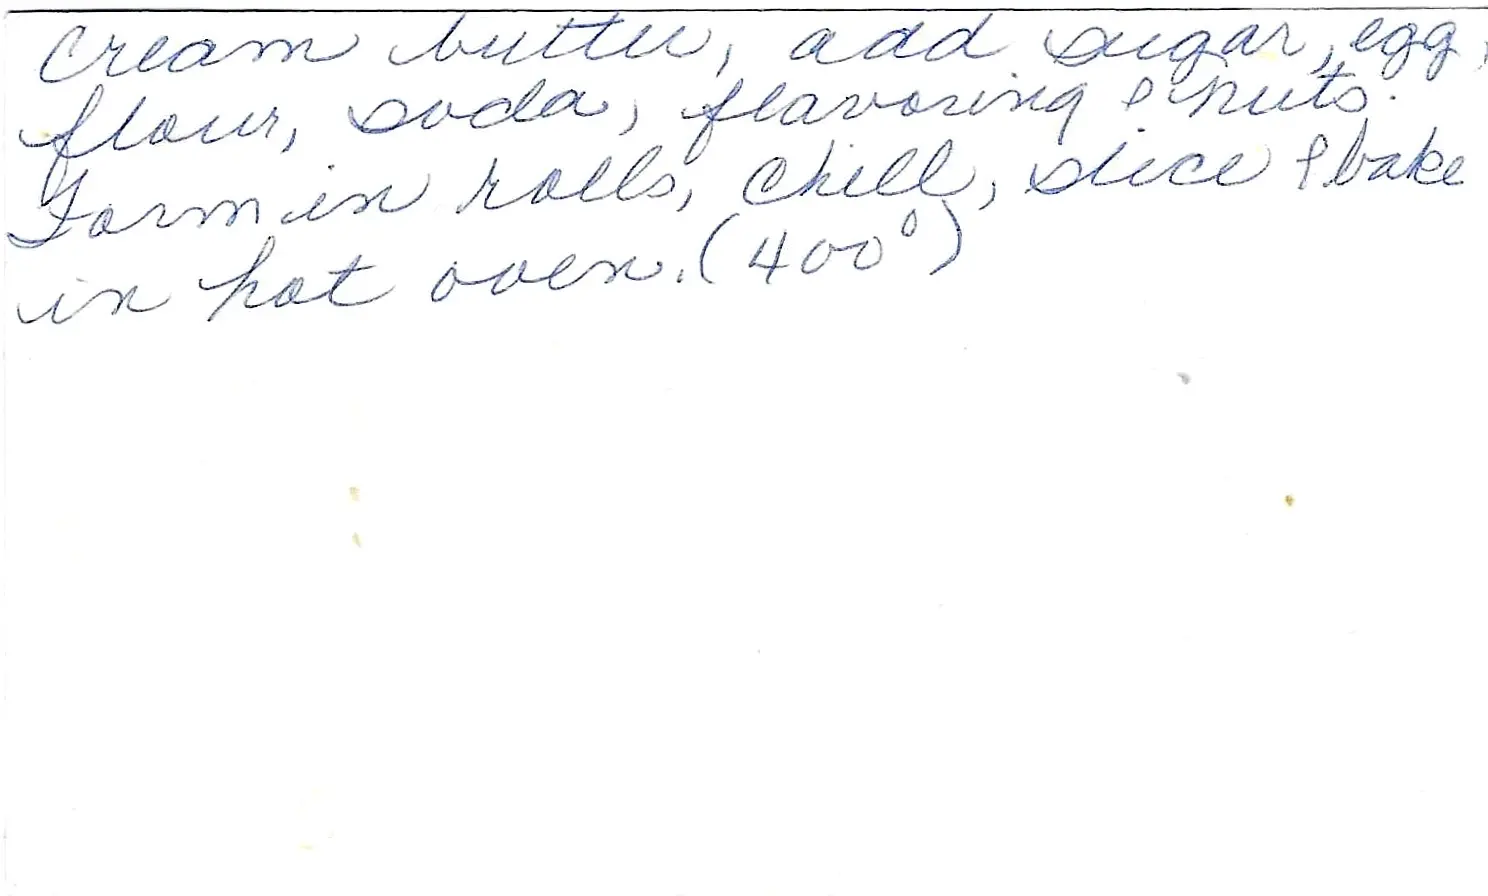 Cream butter, add sugar, egg,
flour, soda, flavoring & nuts.
Form in rolls, chill, slice & bake
in hot oven. (400°)